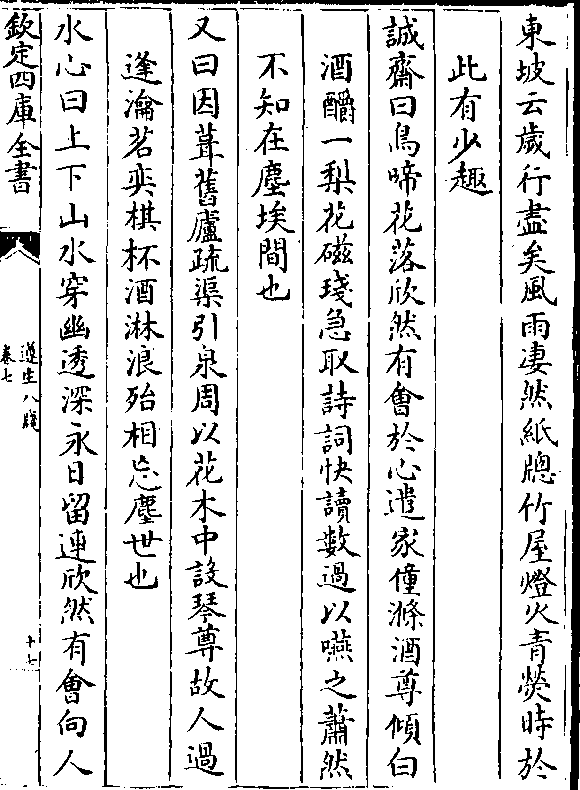 東坡云歲行盡矣風雨凄然紙牕竹屋燈火青熒時於
此有少趣
誠齋曰鳥啼花落欣然有會於心遣家僮滌酒尊傾白
酒釂一梨花磁琖急取詩詞快讀數過以嚥之蕭然
不知在塵埃間也
又曰因葺舊廬疏渠引泉周以花木中設琴尊故人過
逢瀹茗奕棋杯酒淋浪殆相忘塵世也
水心曰上下山水穿幽透深永日留連欣然有會向人
欽定四庫全書
遵生八牋
卷七
十七